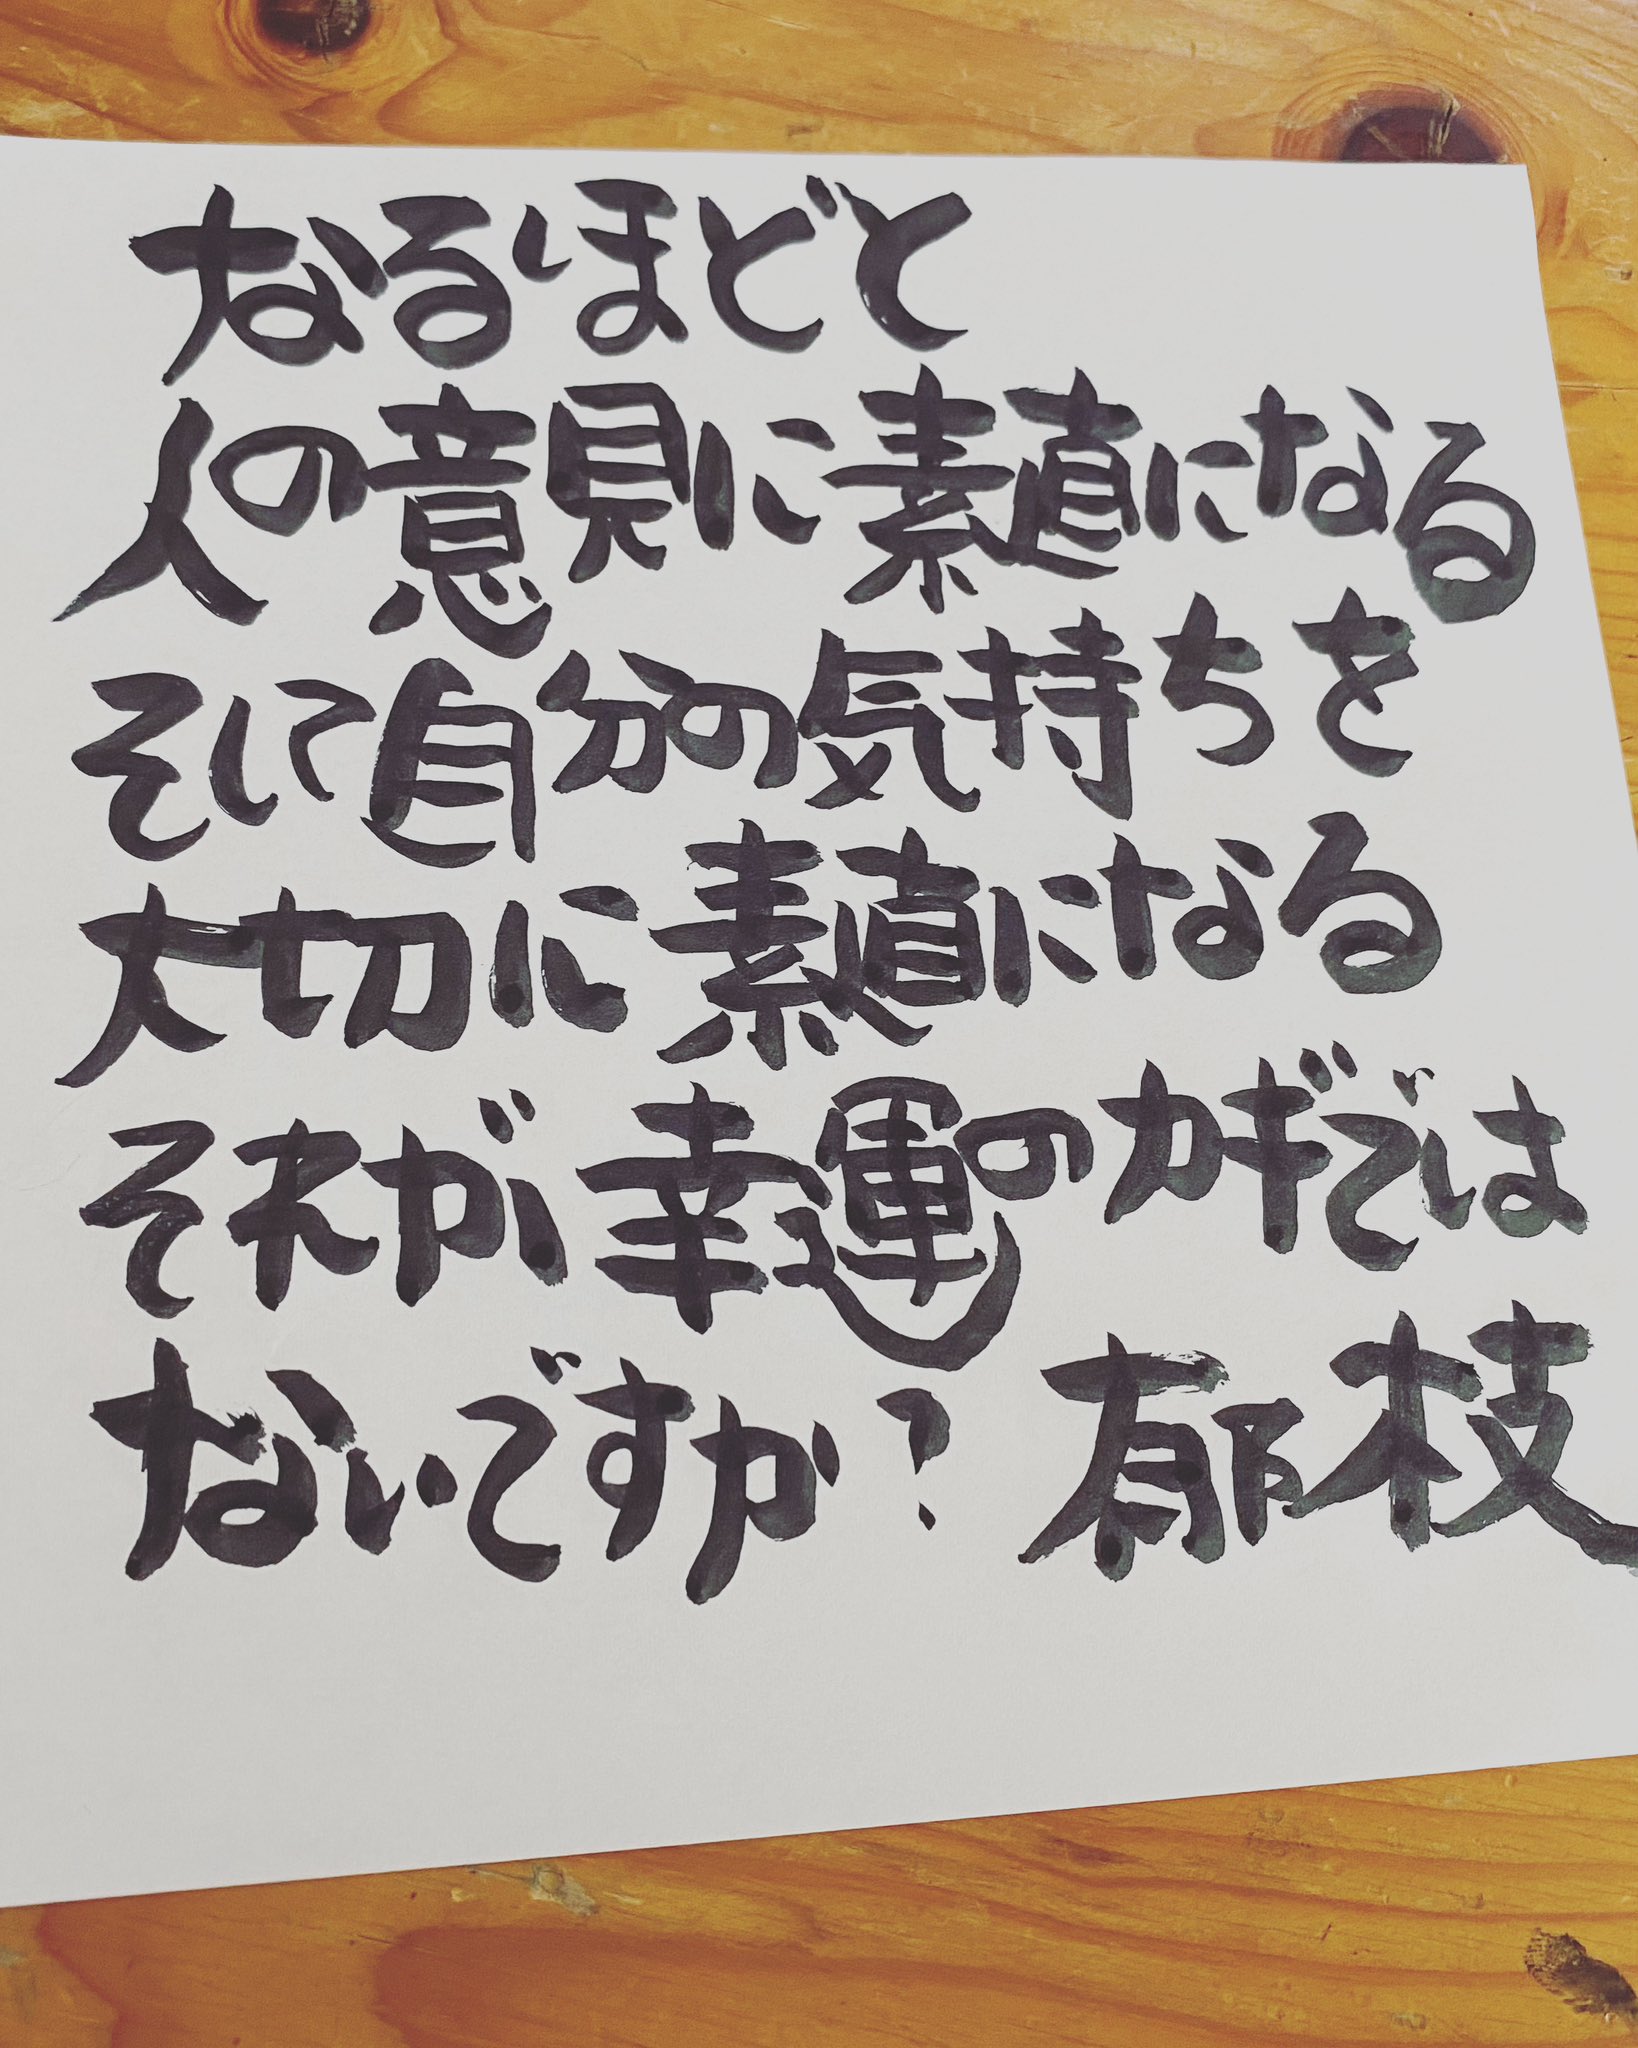 なるほどと
人の意見に素直になる
そして自分の気持ちを
大切に素直になる
それが幸運のカギでは
ないですか? 郁枝